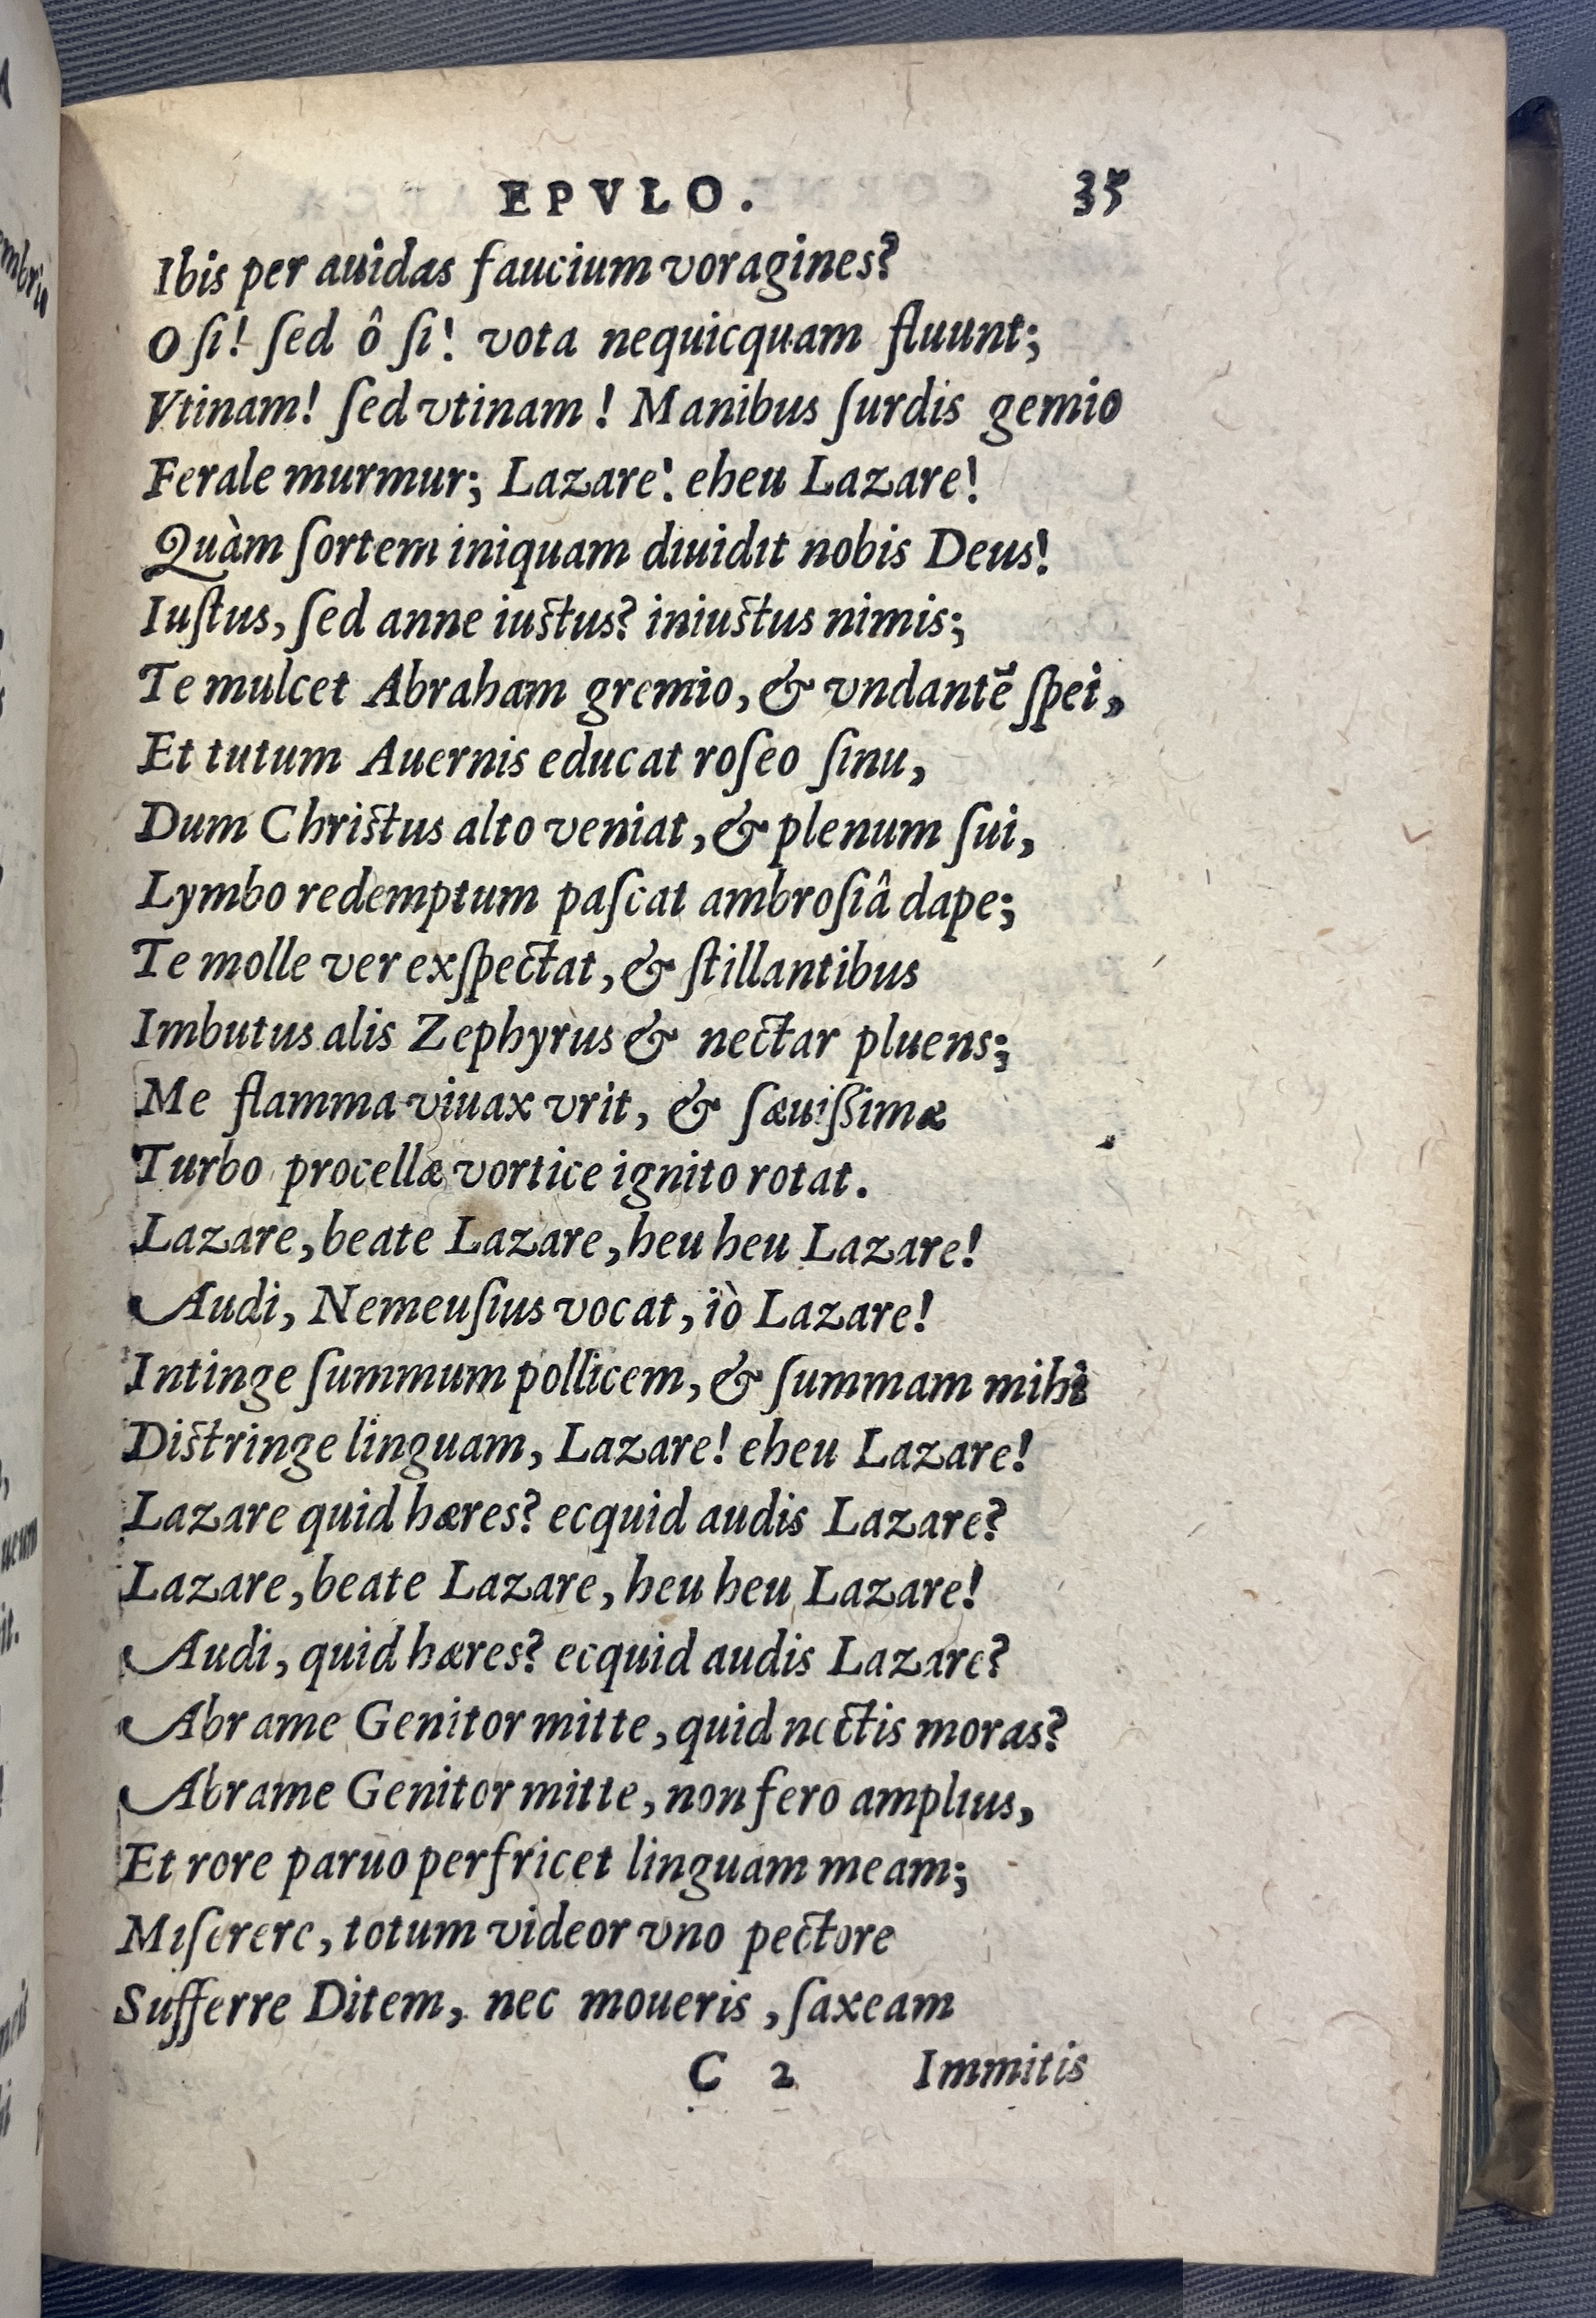 EPVLO. 35
Ibis per auidas faucium voragines?
O ſi! ſed ô ſi! vota nequicquam fluunt;
Vtinam! ſed vtinam! Manibus ſurdis gemio
Ferale murmur; Lazare! eheu Lazare!
Quàm ſortem iniquam diuidit nobis Deus!
Iuſtus, ſed anne iuſtus? iniuſtus nimis;
Te mulcet Abraham gremio, & vndantẽ ſpei,
Et tutum Auernis educat roſeo ſinu,
Dum Chriſtus alto veniat, & plenum ſui,
Lymbo redemptum paſcat ambroſiâ dape;
Te molle ver exſpectat, & ſtillantibus
Imbutus alis Zephyrus & nectar pluens;
Me flamma viuax vrit, & ſæuiſſimæ
Turbo procellæ vortice ignito rotat.
Lazare, beate Lazare, heu heu Lazare!
Audi, Nemeuſius vocat, iò Lazare!
Intinge ſummum pollicem, & ſummam mihi
Diſtringe linguam, Lazare! eheu Lazare!
Lazare quid hæres? ecquid audis Lazare?
Lazare, beate Lazare, heu heu Lazare!
Audi, quid hæres? ecquid audis Lazare?
Abrame Genitor mitte, quid nectis moras?
Abrame Genitor mitte, non fero amplius,
Et rore paruo perfricet linguam meam;
Miſerere, totum videor vno pectore
Sufferre Ditem, nec moueris, ſaxeam
C 2 Immitis